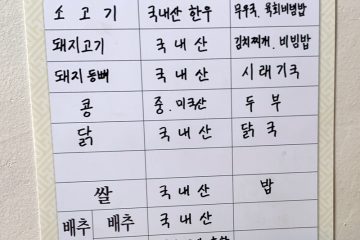 소고기 국내산 한우 무우국, 육회비빔밥
돼지고기 국내산 김치찌개, 비빔밥
돼지 등뼈 국내산 시래기국
콩 중.미국산 두부
닭 국내산 닭국
쌀 국내산 밥
배추 배추 국내산